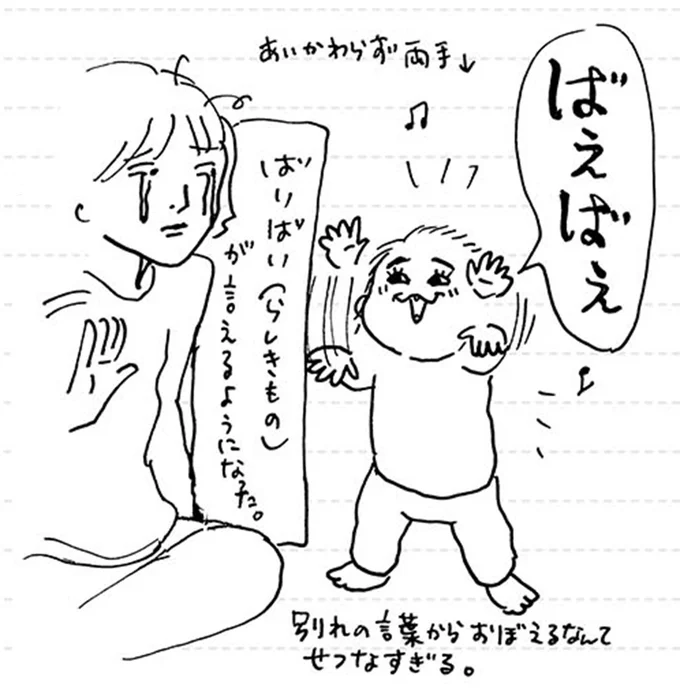 あいかわらず両手↓
ばえばえ
ばいばい(らしきもの)
が言えるようになった。
別れの言葉からおぼえるなんて
せつなすぎる。